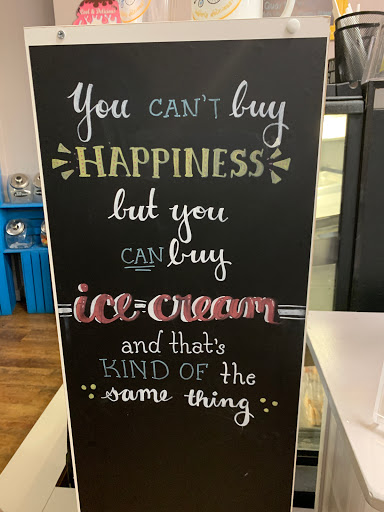 You CAN'T buy
HAPPINESS
but you
CAN buy
ice-cream
and that's
KIND OF the
same thing